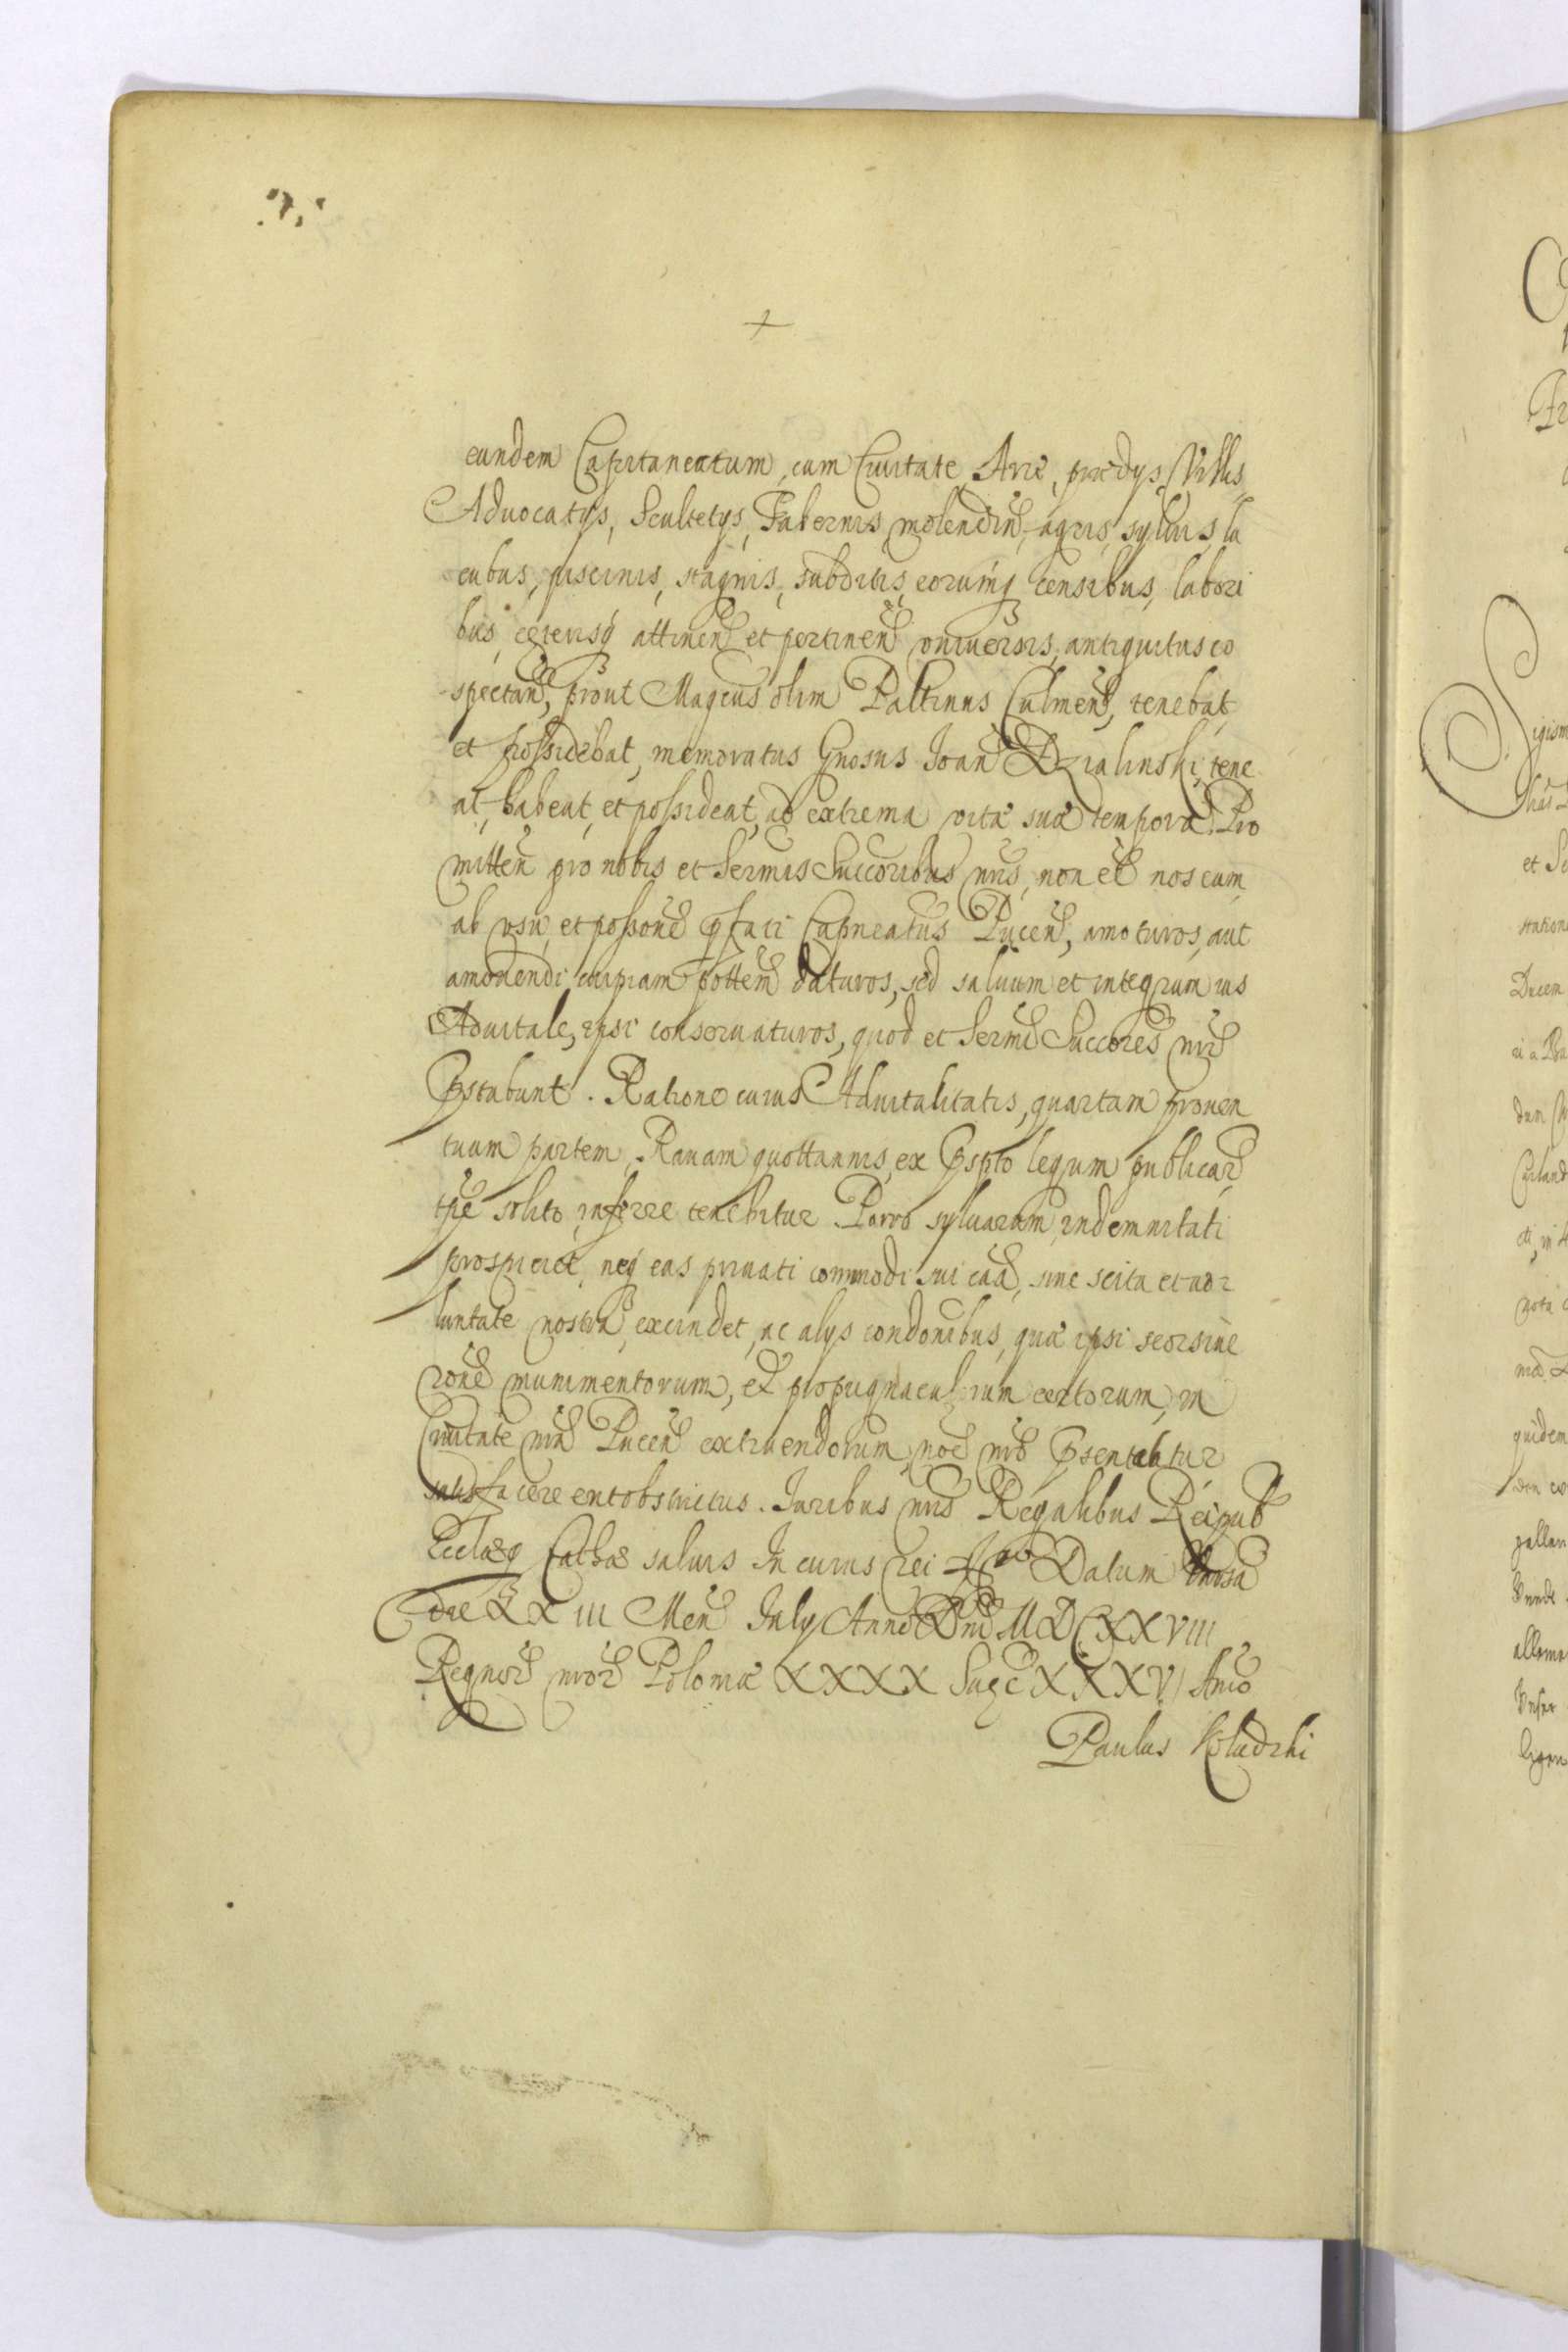 eundem Capitaneatum, cum Civitate, Arce, praedys, Villis
Advocatys, Scultetys, Tabernis, molendin, agris, sylvis, la
cubus, piscinis, stagnis, subditis, eorumq censibus, labori
bus, ceterisq attinen et pertinen universis, antiquitus eo
spectan, prout Magcus olim Paltinus Culmen, tenebat
et possidebat, memoratus Gnosus Joan Dzialinski, tene
at, habeat, et possideat, ad extrema vitae suae tempora. Pro
mitten pro nobis et Sermis Succoribus nris, non ee nos eum
ab usu, et possone pfati Capneatus Pucen, amoturos, aut
amovendi cuipiam pottem daturos, sed salvum et integrum ius
Advitale, ipsi conservaturos, quod et Sermi Succores nri
pstabunt. Ratione cuius Advitalitatis, quartam proven
tuum partem, Ravam quottannis, ex pspto legum publicar
tpe solito, inferre tenebitur. Porro sylvarum indemnitati
prospiciet, neq eas privati commodi sui cau, sine scitu et vo
luntate nostra, excindet, ac alys condonibus, quae ipsi seorsive
rone munimentorum, et propugnaculorum certorum, in
Civitate nra Pucen extruendorum, noe nro psentabitur
satisfacere erit obstrictus. Juribus nris Regalibus Reipub
Ecclaeq Cathae salvis In cuius rei Datum
die XXIII Men July Anno Dni MDCXXVIII
Regnor nror Poloniae XXXX Suec XXXV Anno
Paulus Koludzki